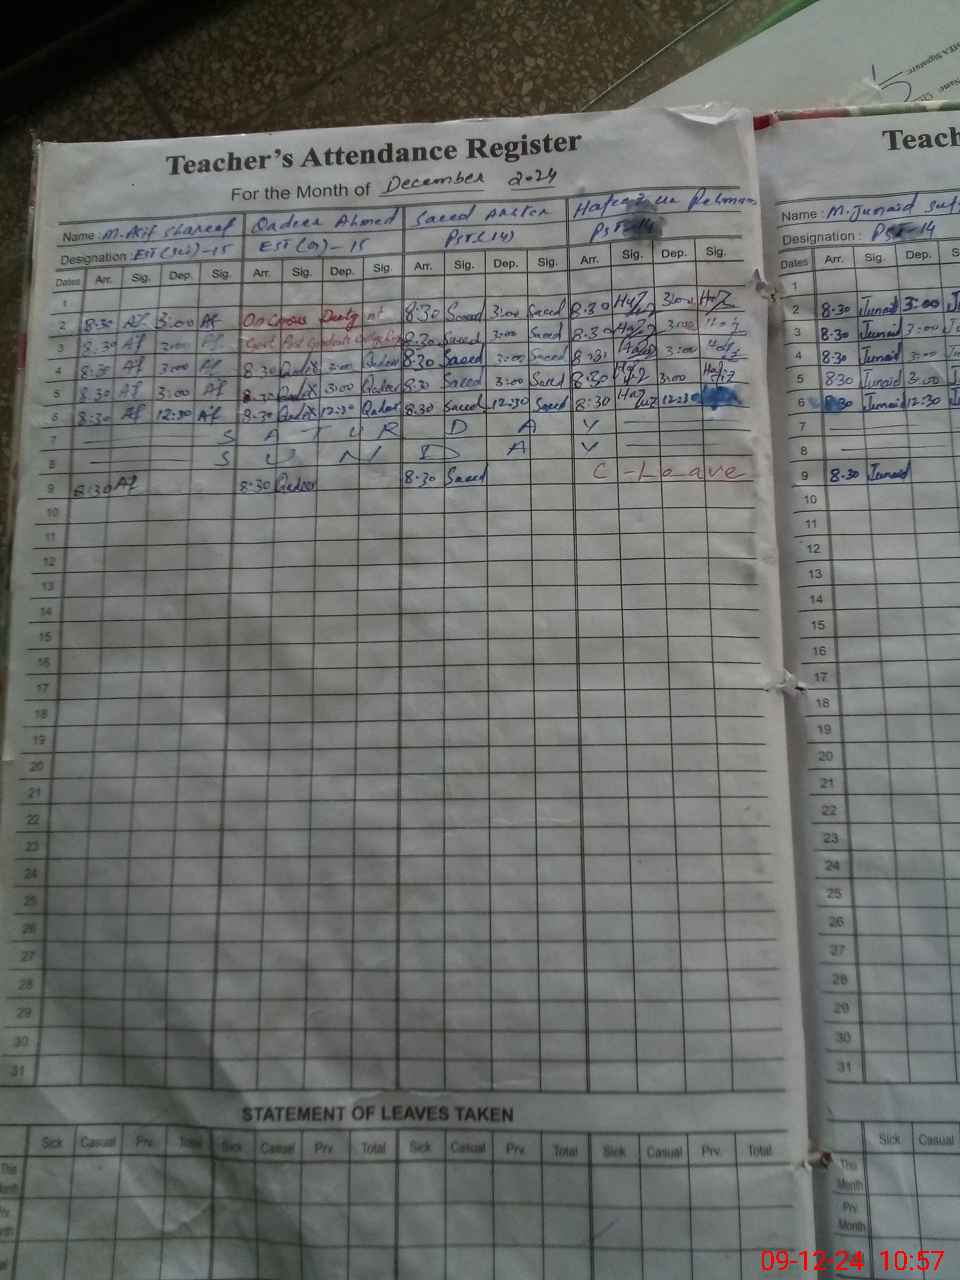 Teacher's Attendance Register
For the Month of December 2024
Name : M. Asif Shareef Qadeer Ahmed Saeed Hafeez ur Rehman
Designation : EST (Sci) - 15 EST (O) - 15 PST (14) PST - 14
Dates Arr. Sig. Dep. Sig. Arr. Sig. Dep. Sig. Arr. Sig. Dep. Sig. Arr. Sig. Dep. Sig.
1
2 8:30 Af 3:00 Af On Census Duty at 8:30 Saeed 3:00 Saeed 8:30 3:00
3 8:30 Af 3:00 Af Govt. Post Graduate 8:30 Saeed 3:00 Saeed 8:30 3:00
4 8:30 Af 3:00 Af 8:30 Qadeer 3:00 Qadeer 8:30 Saeed 3:00 Saeed 8:30 3:00
5 8:30 Af 3:00 Af 8:30 Qadeer 3:00 Qadeer 8:30 Saeed 3:00 Saeed 8:30 3:00
6 8:30 Af 12:30 Af 8:30 Qadeer 12:30 Qadeer 8:30 Saeed 12:30 Saeed 8:30 12:30
7 S A T U R D A Y
8 S U N D A Y
9 8:30 Af 8:30 Qadeer 8:30 Saeed C - Leave
10
11
12
13
14
15
16
17
18
19
20
21
22
23
24
25
26
27
28
29
30
31
STATEMENT OF LEAVES TAKEN
Sick Casual Prv. Total Sick Casual Prv. Total Sick Casual Prv. Total Sick Casual Prv. Total
This
Month
Teach
Name : M. Junaid
Designation : PST - 14
Dates Arr. Sig. Dep. S
1
2 8:30 Junaid 3:00
3 8:30 Junaid 3:00
4 8:30 Junaid 3:00
5 8:30 Junaid 3:00
6 8:30 Junaid 12:30
7
8
9 8:30 Junaid
10
11
12
13
14
15
16
17
18
19
20
21
22
23
24
25
26
27
28
29
30
31
Sick Casual
This
Month
Prv.
Month
09-12-24 10:57